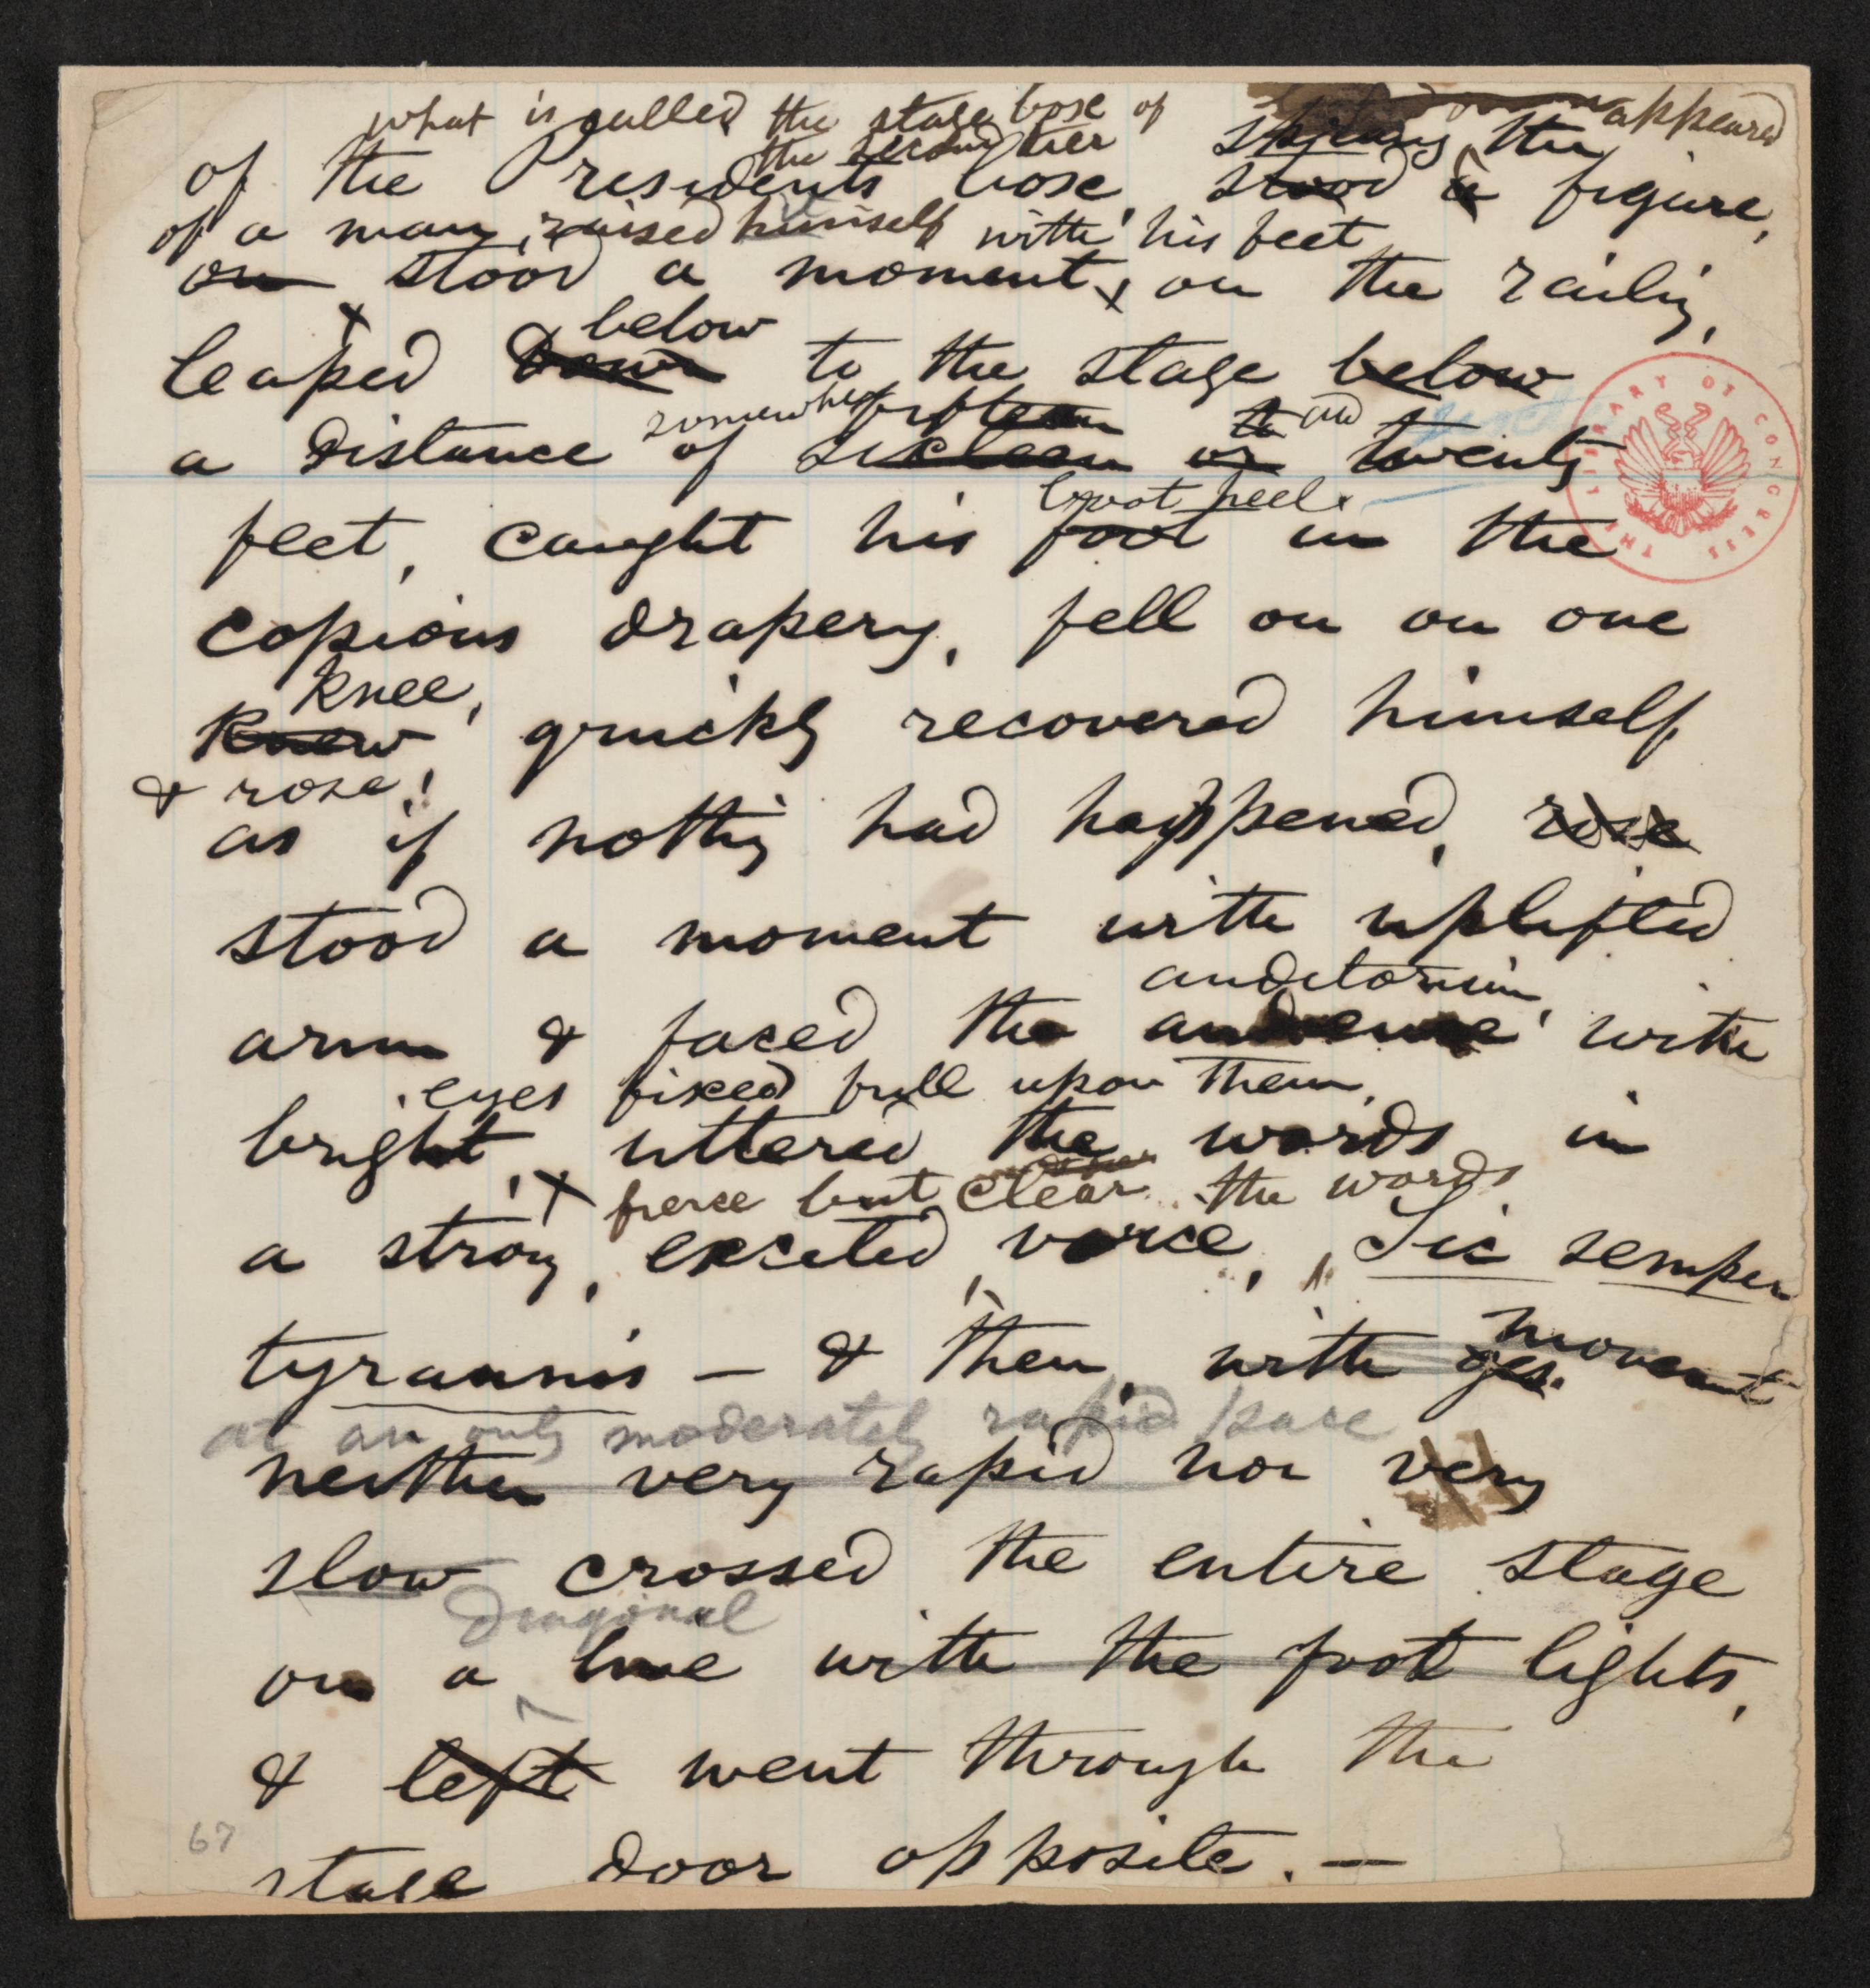 what is called the stage box of appeared
the second tier the
of the Presidents box, stood a figure,
of a man, raised himself with his feet
on stood a moment, on the railing,
below
leaped down to the stage below
somewhere fifteen to and
a distance of sixteen or twenty
boot heel
feet, caught his foot in the
copious drapery, fell on on one
knee,
knew quickly recovered himself
& rose!
as if nothing had happened, rose
stood a moment with uplifted
auditorium,
arm & faced the audience with
eyes fixed full upon them,
bright, uttered the words in
fierce but clear the words
a strong, excited voice, Sic semper
movement
tyrannis — & then, with ges.
at an only moderately rapid pace
neither very rapid nor very
slow crossed the entire stage
diagonal
on a line with the foot lights,
& left went through the
67
stage door opposite. —
THE LIBRARY OF CONGRESS